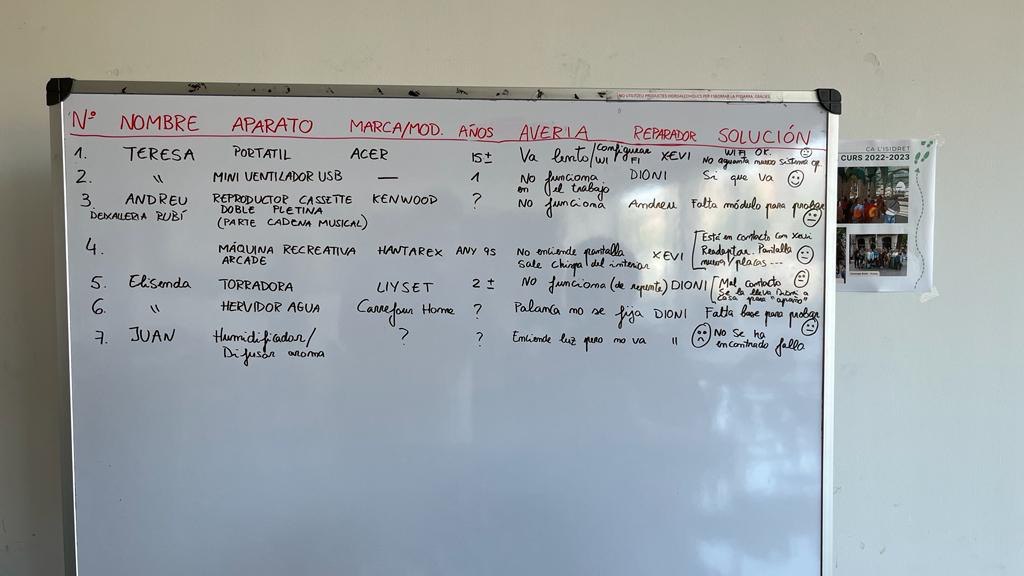 NO UTILITZEU PRODUCTES HIDROALCOHÒLICS PER ESBORRAR LA PISSARRA, GRÀCIES
Nº NOMBRE APARATO MARCA/MOD. AÑOS AVERIA REPARADOR SOLUCIÓN
1. TERESA PORTATIL ACER 15± Va lento/configurar WI FI XEVI WIFI OK.
No aguanta nuevo sistema op.
2. " MINI VENTILADOR USB — 1 No funciona en el trabajo DIONI Si que va
3. ANDREU REPRODUCTOR CASSETTE KENWOOD ? No funciona Andreu Falta módulo para probar
DEIXALLERIA RUBÍ DOBLE PLETINA
(PARTE CADENA MUSICAL)
4. MÁQUINA RECREATIVA HANTAREX ANY 95 No enciende pantalla XEVI Está en contacto con Xevi
ARCADE Sale chispa del interior Readaptar. Pantalla
nueva/placas ---
5. Elisenda TORRADORA LIYSET 2± No funciona (de repente) DIONI Mal contacto
Se la lleva Dioni a
casa para "apaño"
6. " HERVIDOR AGUA Carrefour Home ? Palanca no se fija DIONI Falta base para probar
7. JUAN Humidificador/ ? ? Enciende luz pero no va " No se ha
Difusor aroma encontrado fallo
CA L'ISIDRET
CURS 2022-2023